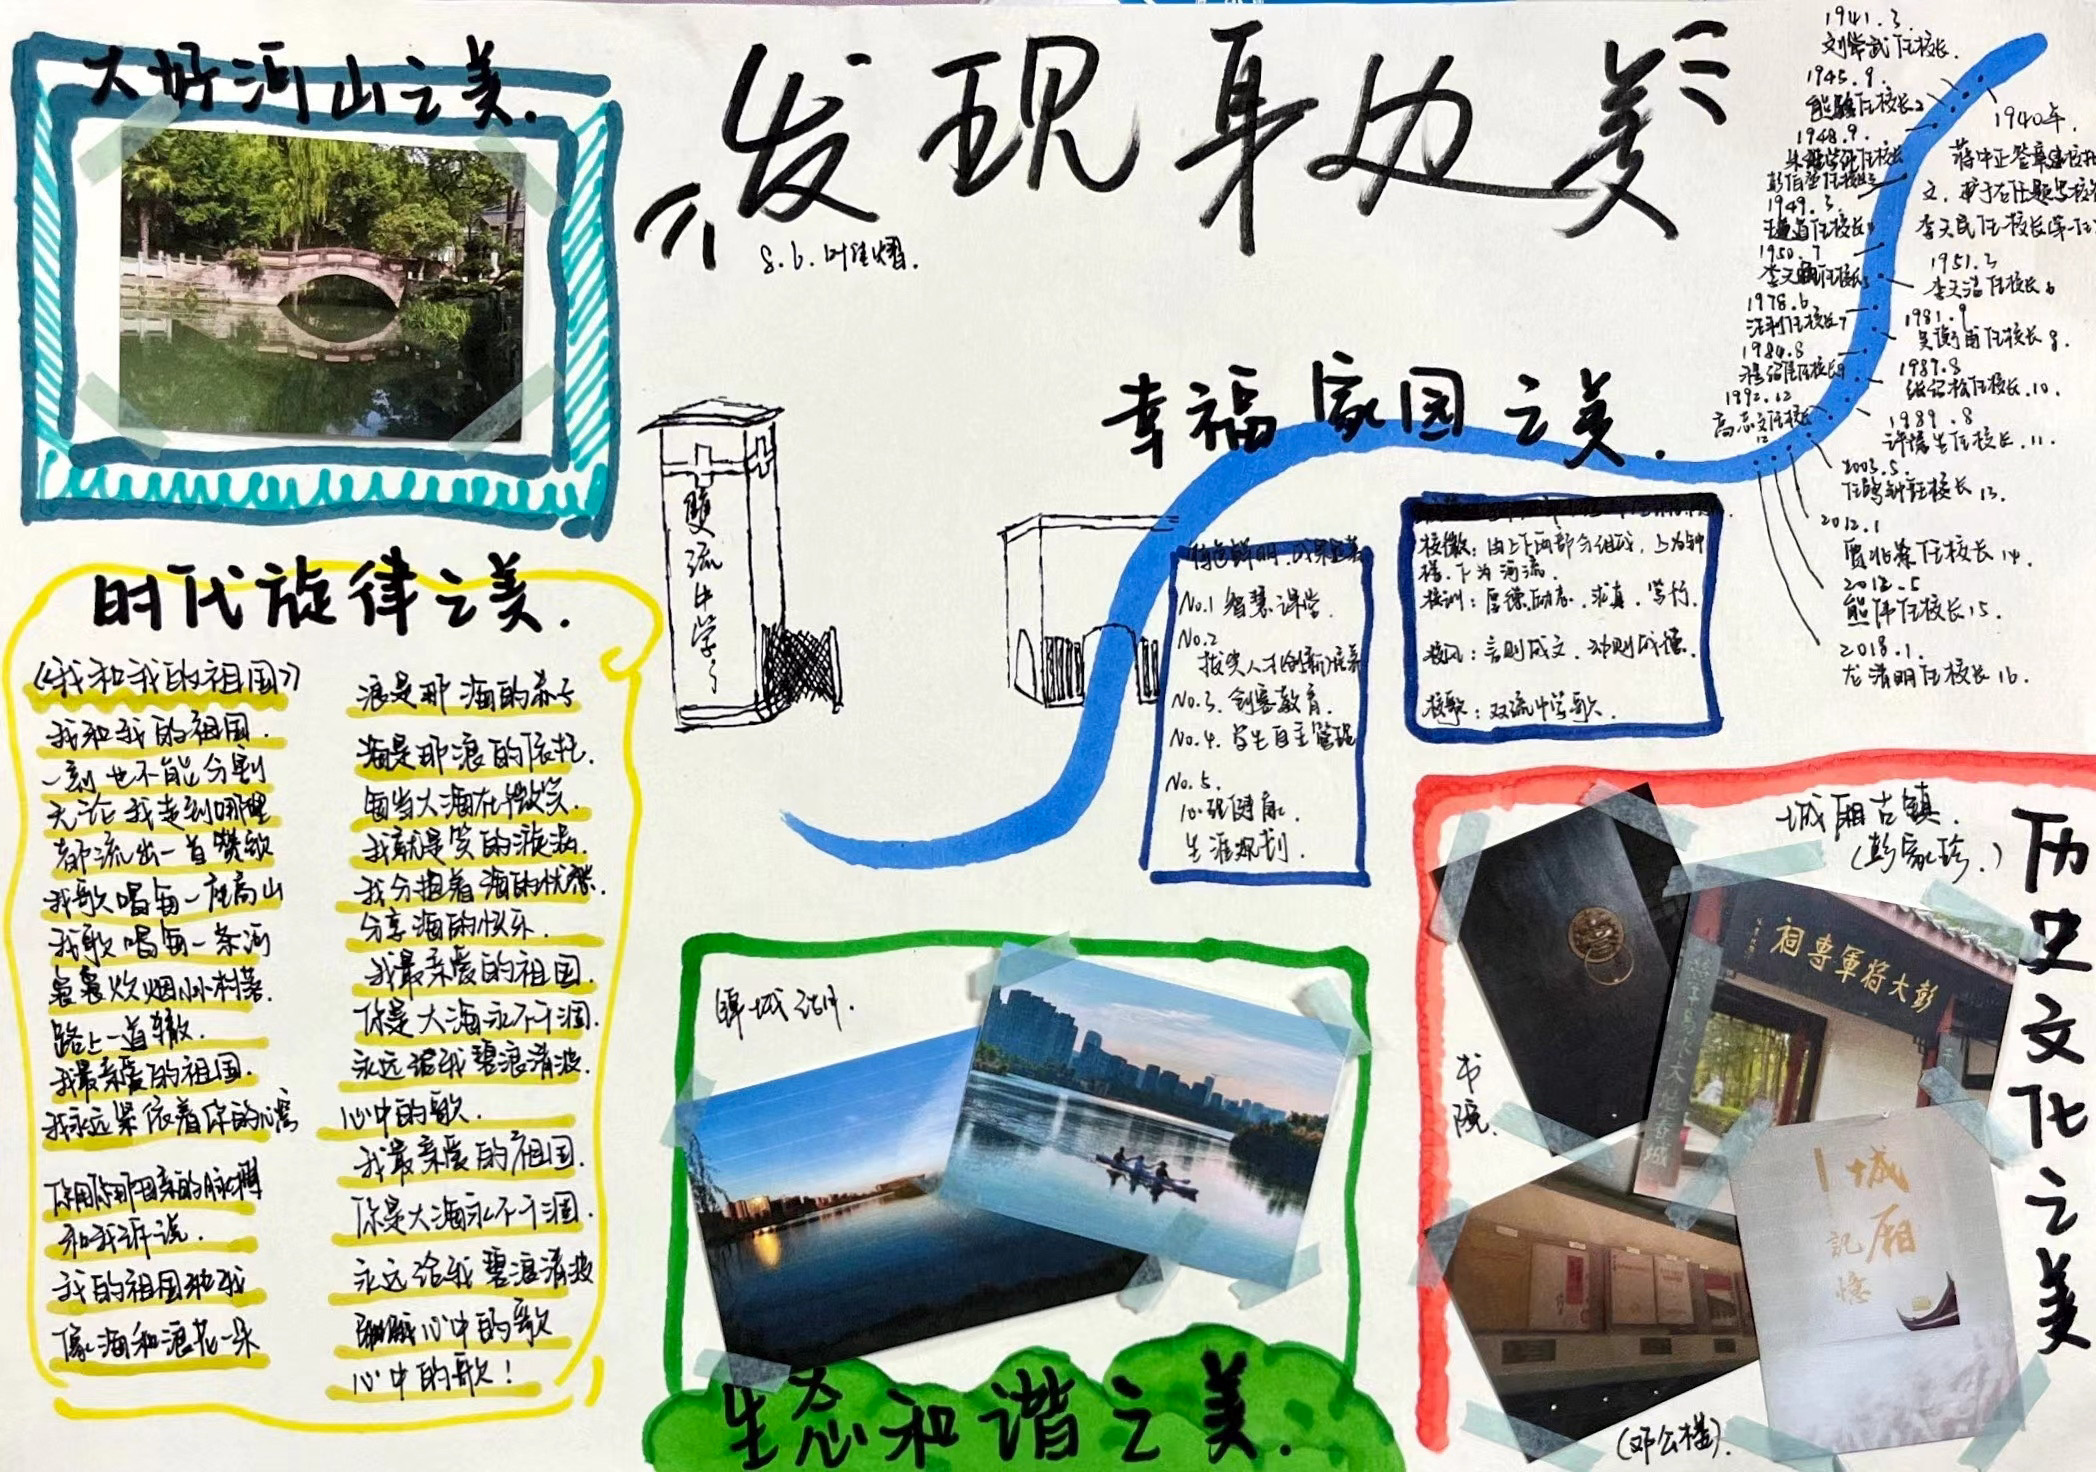 大好河山之美.
发现身边美
8.6.叶佳熠.
时代旋律之美.
《我和我的祖国》
我和我的祖国.
一刻也不能分割
无论我走到哪里
都流出一首赞歌
我歌唱每一座高山
我歌唱每一条河
袅袅炊烟小小村落.
路上一道辙.
我最亲爱的祖国.
我永远紧依着你的心窝
你用你那母亲的脉搏
和我诉说.
我的祖国和我
像海和浪花一朵
浪是那海的赤子
海是那浪的依托.
每当大海在微笑.
我就是笑的漩涡.
我分担着海的忧愁.
分享海的快乐.
我最亲爱的祖国.
你是大海永不干涸.
永远给我碧浪清波.
心中的歌.
我最亲爱的祖国.
你是大海永不干涸.
永远给我碧浪清波
心中的歌
心中的歌!
雙流中学
幸福家园之美.
特色鲜明.成果显著
No.1 智慧课堂.
No.2
拔尖人才创新培养
No.3. 创客教育.
No.4. 学生自主管理
No.5.
心理健康.
生涯规划.
校徽:由上下两部分组成,上为钟
楼,下为河流.
校训:厚德.励志.求真.笃行.
校风:言则成文.动则成德.
校歌:双流中学歌.
1941.3.
刘常武任校长.
1945.9.
任校长2
1948.9.
任校长
彭伯堂任校长3
1949.3.
任校长
1950.7
任校长5
1978.6
任校长7
1984.8
任校长9
1992.12
高志文任校长
12
1940年.
蒋中正签章建校
文.于右任题写校
李天民任校长(第一任
1951.3
李天浩任校长6
1981.9
吴衡甫任校长8.
1987.8
任校长.10.
1989.8
许培生任校长.11.
2003.5.
任校长13.
2012.1
贾兆荣任校长14.
2012.5
熊伟任校长15.
2018.1.
龙清明任校长16.
生态和谐之美.
历史文化之美
城厢古镇.
(彭家珍.)
彭大将軍專祠
书院.
城厢
記憶
(邓公楼).